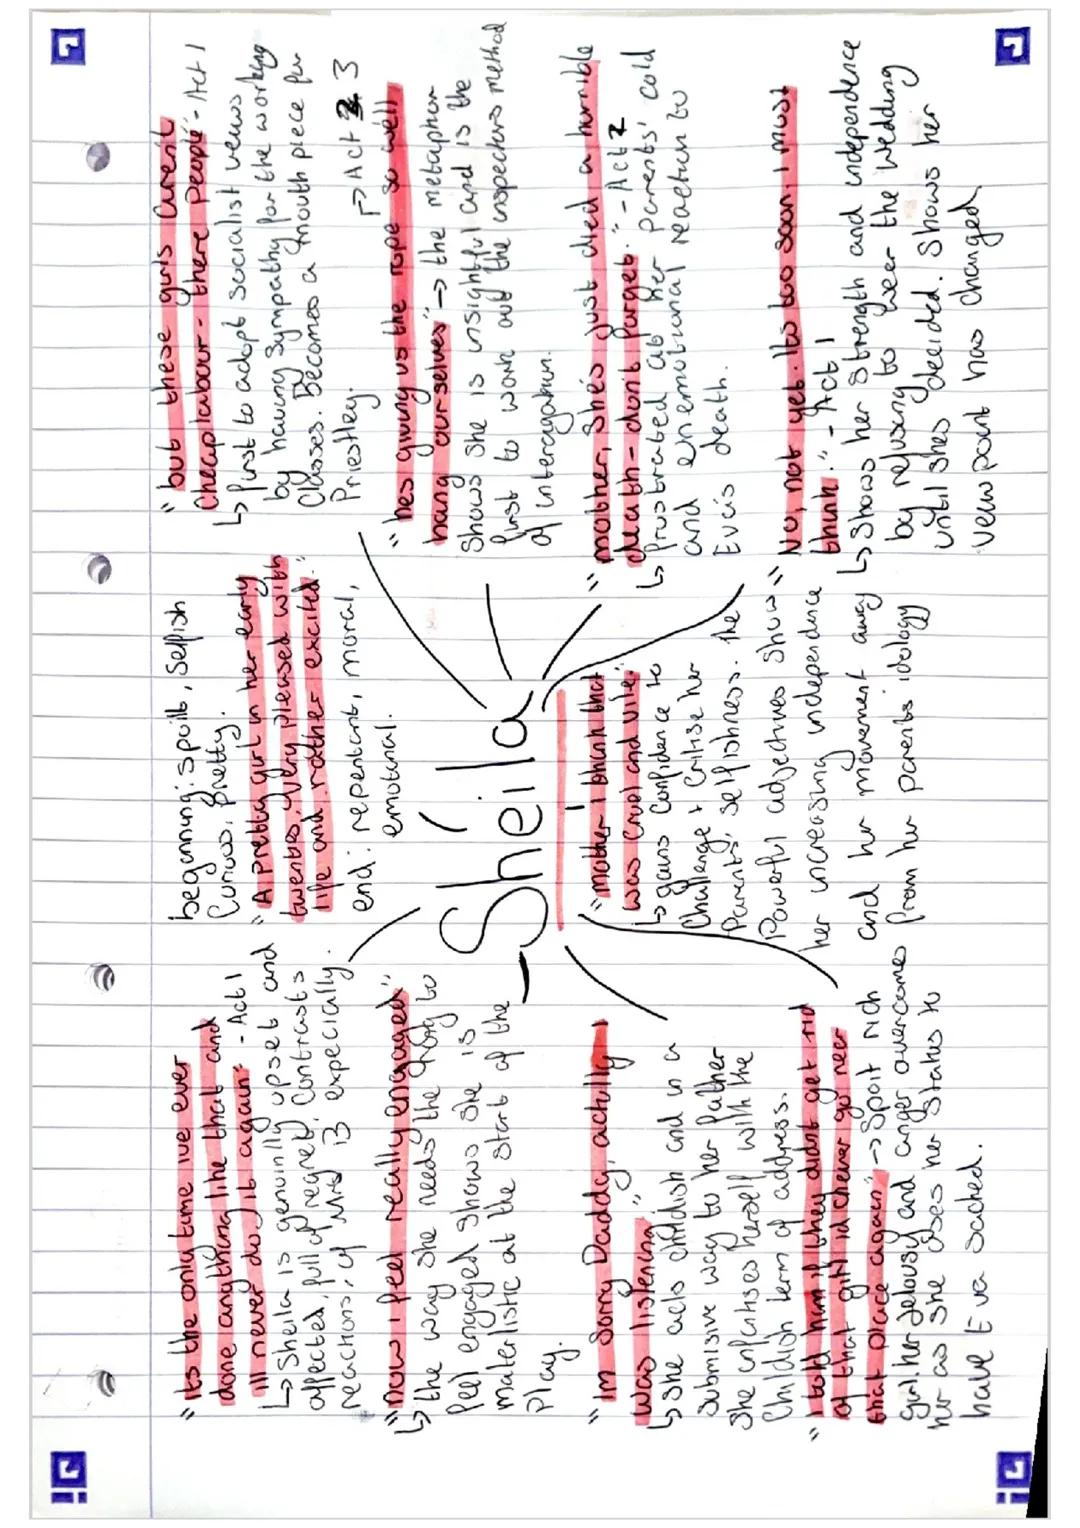 "its the only time ive ever
done anything like that and
ill never do it again" - Act 1
↳ Sheila is genuinlly upset and
affected, full of regret, Contrasts
reactions, of Mrs B expecially.
"now i feel really engaged"
↳ the way she needs the ring to
feel engaged shows she is
materlistic at the start of the
play.
"Im Sorry Daddy, actully I
was listening"
↳ She acts childish and in a
submisive way to her father
She infantises herself with the
Childish term of address.
"I told him if they didnt get rid
of that girl id never go near
that place again" → Spoit rich
girl. her jelousy and anger overcomes
her as she uses her status to
have Eva sacked.
beginning: spoilt, selfish
Curious, pretty.
"A pretty girl in her early
twenties, very pleased with
life and rather excited."
end: repentant, moral,
emotional.
Sheila
"mother I think that
was cruel and vile"
↳ gains confidence to
Challenge + Critise her
Parents' selfishness. the
Powerful adjectives show
her increasing independence
and her movement away
from her parents idology
"but these girls arent
Cheap labour - there people" - Act 1
↳ first to adopt socialist veiws
by having sympathy for the working
Classes. Becomes a mouth piece for
Priestley.
↱ Act 3
"hes giving us the rope so well
hang ourselves" → the metaphor
Shows she is insightful and is the
first to work out the inspectors method
of interagation.
"mother, she's just died a horrible
death - dont forget." - Act 2
↳ frustrated at her parents' cold
and unemotional reaction to
Eva's death.
"No, not yet. Its too soon. I must
think." - Act 1
↳ Shows her strength and independence
by refusing to weer the wedding
until shes decided. Shows her
veiw point has changed.